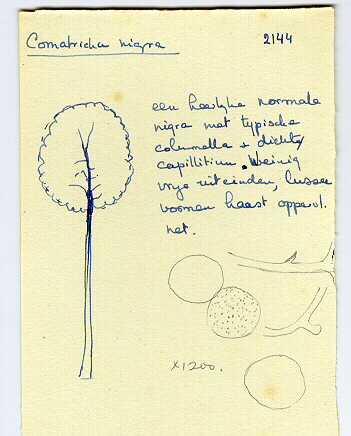 Comatricha nigra
2144
een heerlijke normale
nigra met typische
columella + dichte
capillitium. Weinig
vrije uiteinden, lussen
vormen haast oppervl.
net.
x1200.